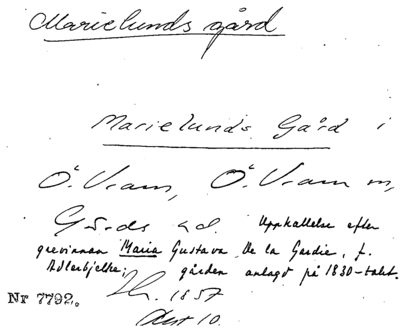 Marielunds gård
Marielunds Gård i
Ö. Vram, Ö. Vram sn,
Gärds hd. Uppkallelse efter
grevinnan Maria Gustava De la Gardie, f.
Adlerbjelke; gården anlagd på 1830-talet.
Nr 7792. 1857